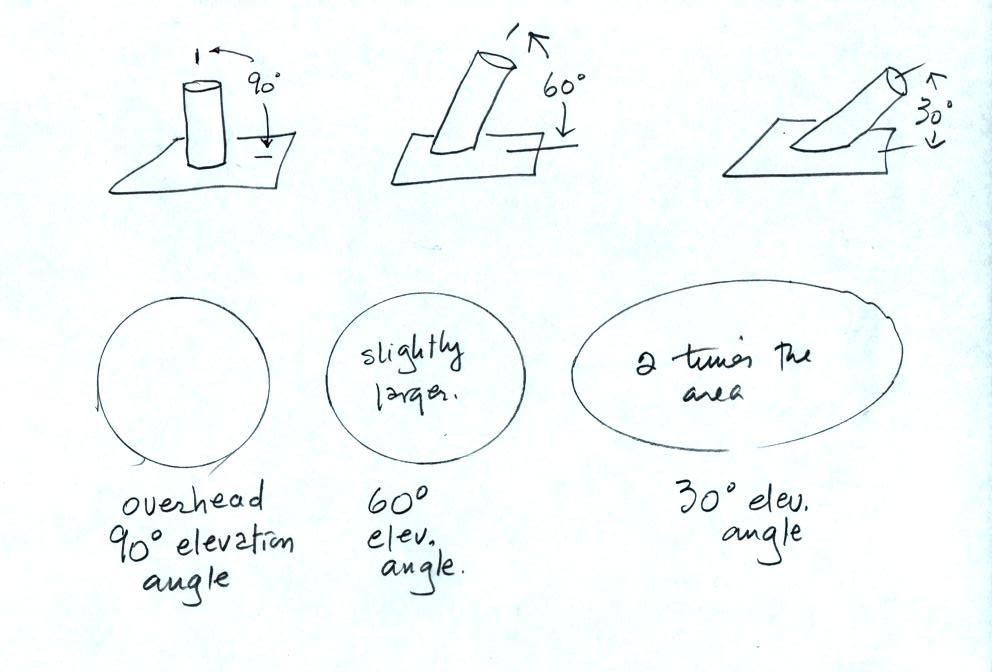 90°
60°
30°
slightly
larger.
2 times the
area
overhead
90° elevation
angle
60°
elev.
angle.
30° elev.
angle